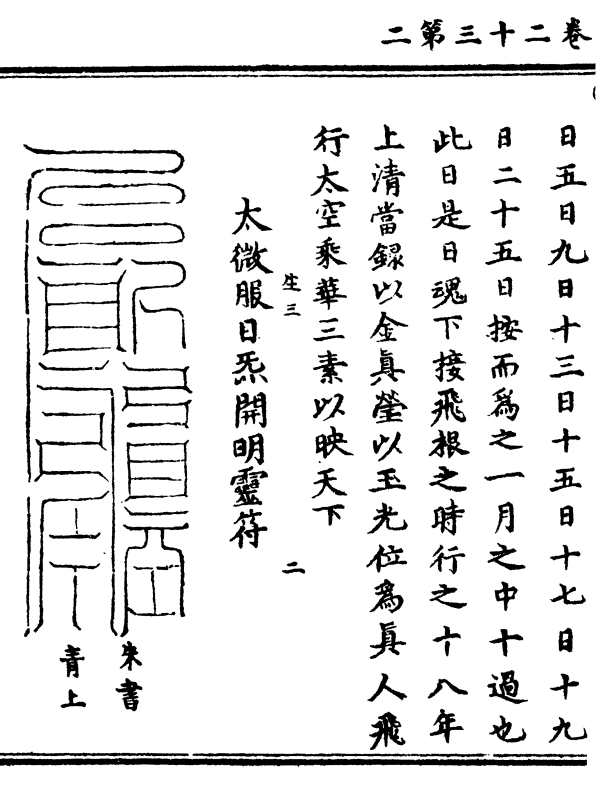 卷二十三第二
日五日九日十三日十五日十七日十九
日二十五日按而爲之一月之中十過也
此日是日魂下接飛根之時行之十八年
上清當録以金眞瑩以玉光位爲眞人飛
行太空乘華三素以映天下
生三
二
太微服日炁開明靈符
朱書
青上